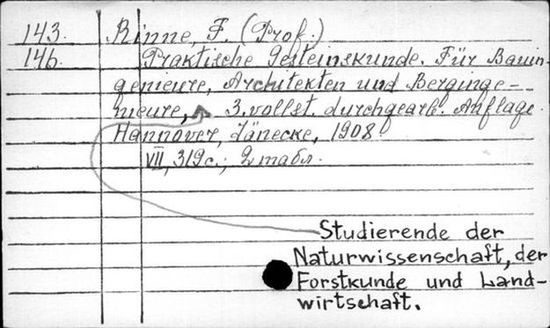 143. Rinne, F. (Prof.)
146. Praktische Gesteinskunde. Für Bauin-
genieure, Architekten und Berginge-
nieure, 3. vollst. durchgearb. Auflage.
Hannover, Jänecke, 1908
VII, 319 с.; 2 табл.
Studierende der
Naturwissenschaft, der
Forstkunde und Land-
wirtschaft.